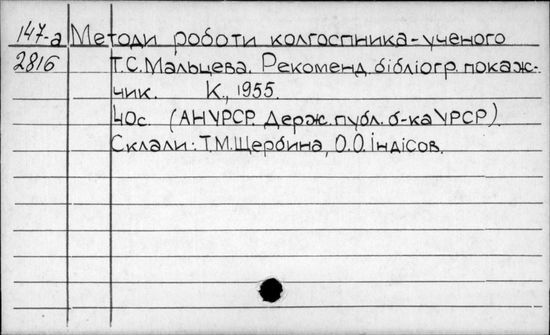 147-а Методи роботи колгоспника-ученого
2816 Т.С.Мальцева. Рекоменд. бібліогр. покаж-
чик. К., 1955.
40с. (АН УРСР. Держ. публ. б-ка УРСР).
Склали: Т.М.Щербина, О.О.Індісов.